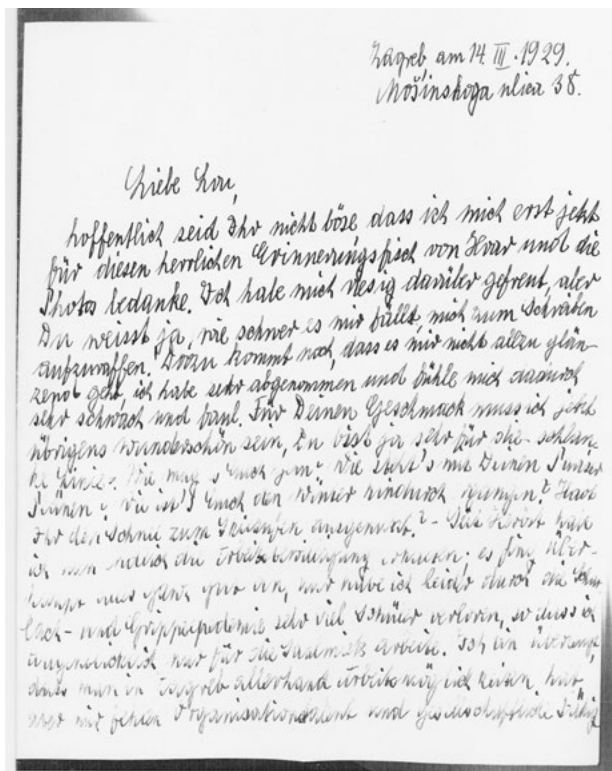 Zagreb am 14. III. 1929.
Mošinskoga ulica 38.
Liebe Lou,
hoffentlich seid Ihr nicht böse dass ich mich erst jetzt
für diesen herrlichen Erinnerungsfisch von Hvar und die
Photos bedanke. Ich habe mich riesig darüber gefreut, aber
Du weisst ja, wie schwer es mir fällt, mich zum Schreiben
aufzuraffen. Dazu kommt noch, dass es mir nicht allzu glän-
zend geht, ich habe sehr abgenommen und fühle mich dadurch
sehr schwach und faul. Für Deinen Geschmack muss ich jetzt
übrigens wunderschön sein, Du bist ja sehr für die schlan-
ke Linie. Wie mag's Euch gehn? Wie steht's mit Deinen
Plänen? Wie ist's Euch den Winter hindurch gangen? Habt
Ihr den Schnee zum Skilaufen ausgenützt? - Seit Herbst habe
ich nun endlich die Arbeitsbewilligung; es fing über-
haupt alles ganz gut an, nur habe ich leider durch die
lach- und Grippeepidemie sehr viel Schüler verloren, so dass ich
augenblicklich nur für die arbeite. Ich bin überzeugt,
dass man in Zagreb allerhand Arbeitsmöglichkeiten hat,
aber mir fehlen Organisationstalent und gesellschaftliche